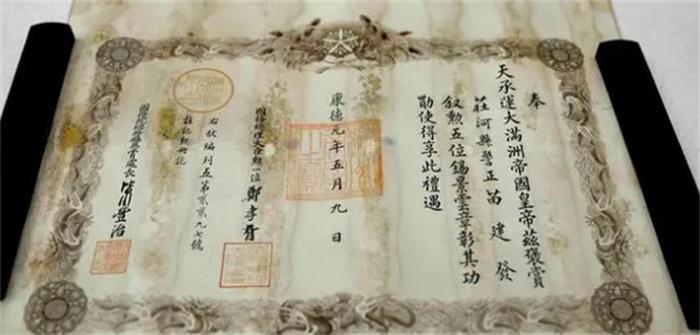 奉
天承運大滿洲帝國皇帝茲褒賞
莊河縣警正苗建發
敘勲五位錫景雲章彰其功
勛使得享此禮遇
康德元年五月九日
國務總理大臣勲一位 鄭孝胥
右狀編列五第貳貳九七號
註記勲冊訖